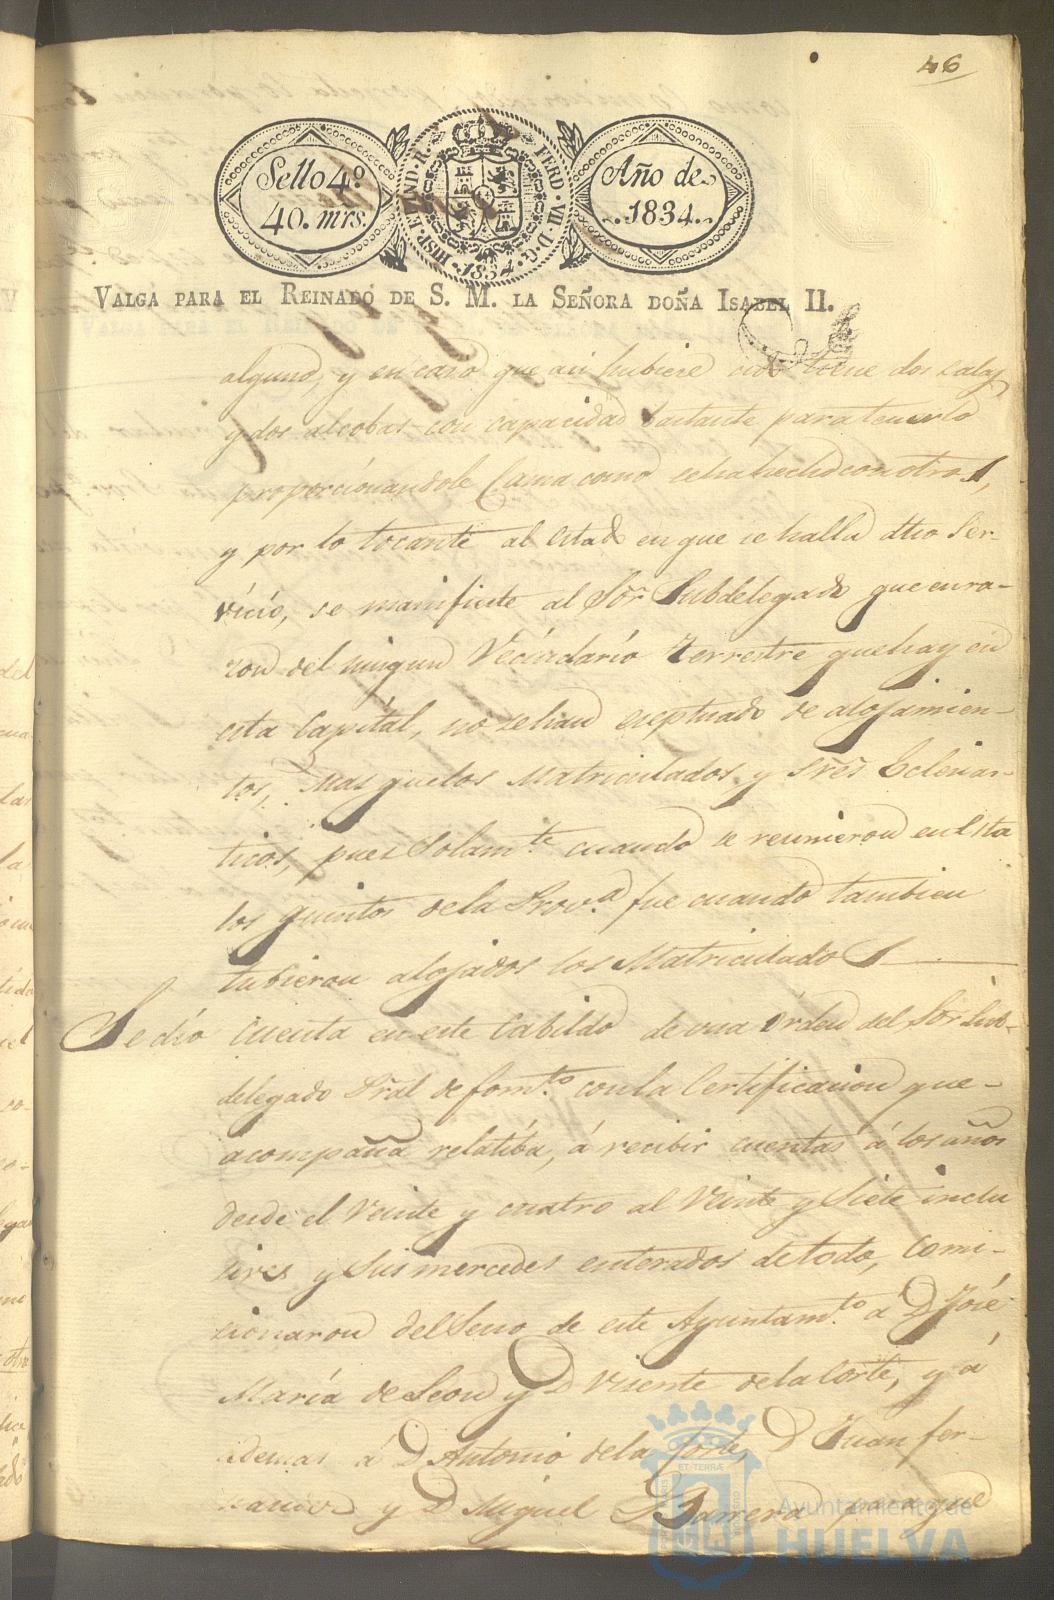 46
Sello 4º
40. mrs.
HISP. ET IND. R. FERD. VII. D. G. 1834.
Año de
1834.
VALGA PARA EL REINADO DE S. M. LA SEÑORA DOÑA ISABEL II.
alguno, y en caso que asi hubiere tiene dos salas,
y dos alcobas con capacidad bastante para tenerlo
proporcionandole Cama como se ha hecho con otros,
y por lo tocante al estado en que se halla dho Ser-
vicio, se manifieste al Sor Subdelegado que en ra-
zon del ningun Vecindario terrestre que hay en
esta Capitál, no se han exeptuado de alojamien-
tos, mas que los Matriculados y Sres Eclesias-
ticos, pues Solamte cuando se reunieron en esta
los quintos de la Prova fue cuando tambien
tubieron alojados los Matriculados
Se dio cuenta en este Cabildo de una órden del Sor Sub-
delegado Pral de fomto con la Certificacion que
acompaña relatiba, á recibir cuentas á los años
desde el Veinte y cuatro al Veinte y Siete inclu
sives y Sus mercedes enterados de todo, Comi-
sionaron del Seno de este Ayuntamto á D José
María de Leon y D Visente de la Corte, y á
demas á D Antonio de la Corte, D Juan fer-
nandez y D Miguel Barrera para que
Ayuntamiento de
HUELVA